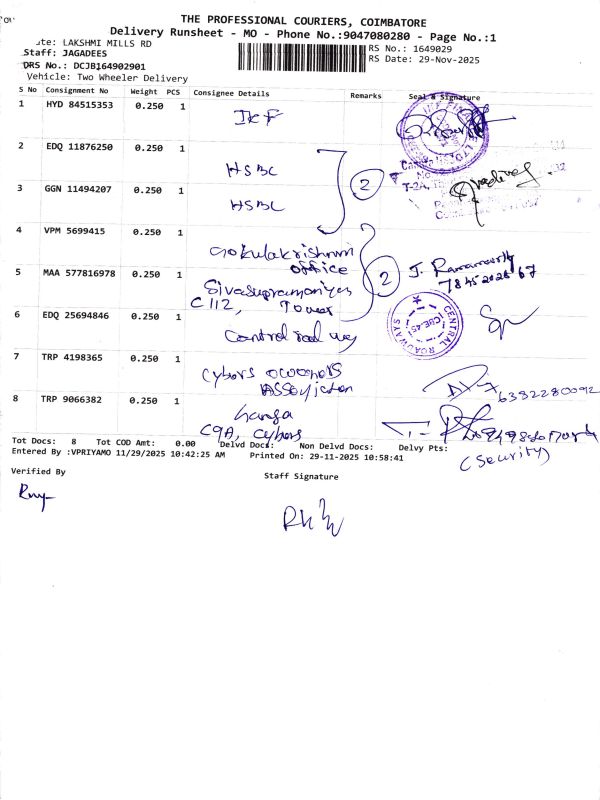 THE PROFESSIONAL COURIERS, COIMBATORE
Delivery Runsheet - MO - Phone No.:9047080280 - Page No.:1
ute: LAKSHMI MILLS RD
Staff: JAGADEES
DRS No.: DCJB164902901
Vehicle: Two Wheeler Delivery
RS No.: 1649029
RS Date: 29-Nov-2025
S No Consignment No Weight PCS Consignee Details Remarks Seal & Signature
1 HYD 84515353 0.250 1
2 EDQ 11876250 0.250 1 HSBC
2
3 GGN 11494207 0.250 1 HSBC
4 VPM 5699415 0.250 1 Gokulakrishnan
office
2 J. Ramamoorthy
5 MAA 577816978 0.250 1 Sivasupramaniyan
C112, Tower
6 EDQ 25694846 0.250 1
CENTRAL ROADWAYS
7 TRP 4198365 0.250 1
6382280092
8 TRP 9066382 0.250 1
C9A, Cybors
Tot Docs: 8 Tot COD Amt: 0.00 Delvd Docs: Non Delvd Docs: Delvy Pts:
(Security)
Entered By :VPRIYAMO 11/29/2025 10:42:25 AM Printed On: 29-11-2025 10:58:41
Verified By
Staff Signature